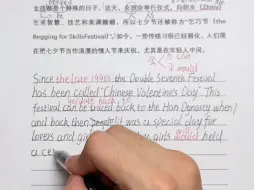 乞求智慧、技艺和美满婚姻，所以七夕节还被称为"乞巧节（the
Begging for Skills Festival）"。如今，一些传统习俗已经弱化，人们现
在把七夕节当作浪漫的情人节来庆祝，尤其是在年轻人中间。
Since the late 1990s the Double Seventh Festival
has been called "Chinese Valentine's Day". This
festival can be traced back to the Han Donasty when
and back then it was a special day for
lovers and girls. girls would held
a ce